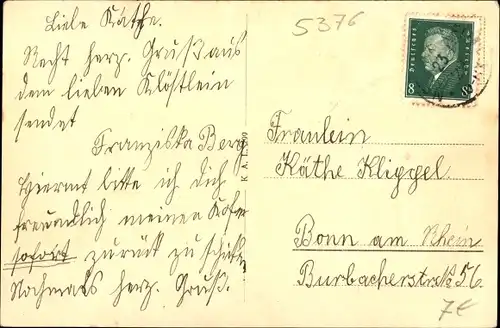 Liebe Käthe.
Recht herz. Gruß aus
dem lieben Klöstlein
sendet
Franziska Berg
Hiermit bitte ich dich
freundlich meinen Koffer
sofort zurück zu schicken
Nochmals herz. Gruß.
5376
Deutsches Reich
8 8
K.A.L.
Fräulein
Käthe Klippel.
Bonn am Rhein
Burbacherstraße 56.
7€